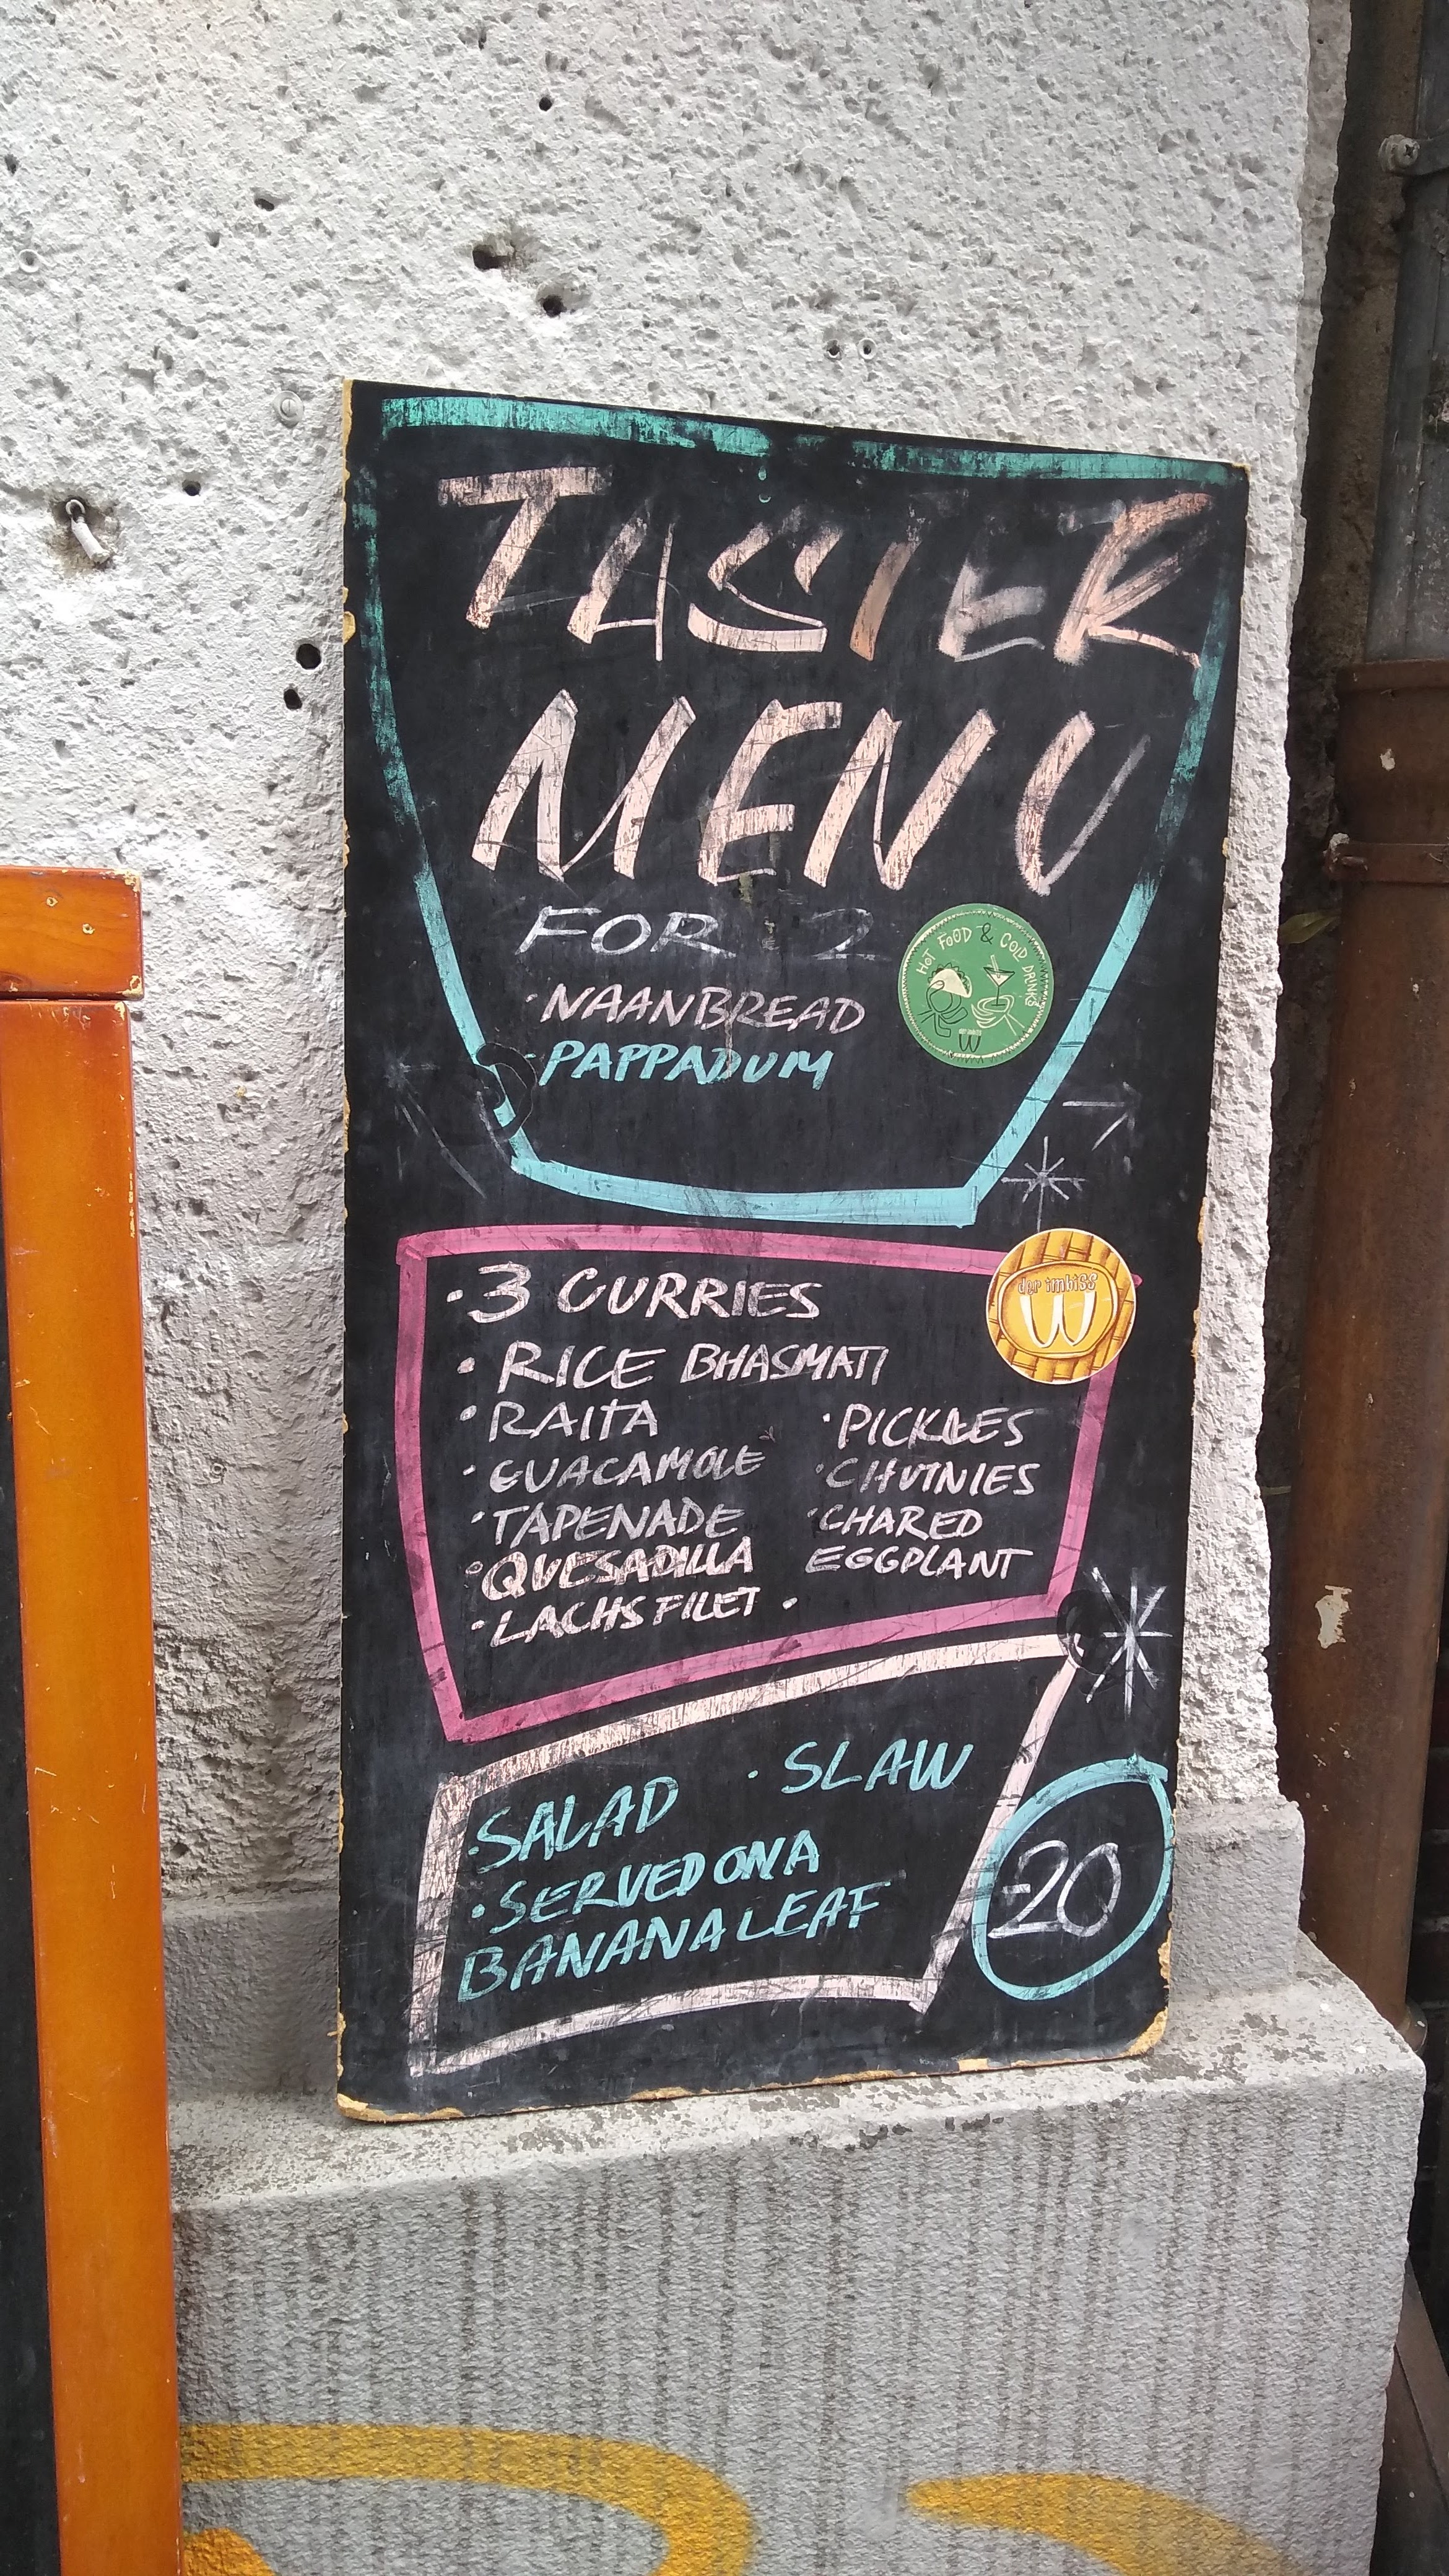 TASTER
MENU
FOR 2
· NAANBREAD
· PAPPADUM
HOT FOOD & COLD DRINKS
W
· 3 CURRIES
· RICE BHASMATI
· RAITA
· GUACAMOLE
· TAPENADE
· QUESADILLA
· LACHSFILET ·
· PICKLES
· CHUTNIES
· CHARED
EGGPLANT
der imbiss
W
· SALAD · SLAW
· SERVED ON A
BANANA LEAF
-20